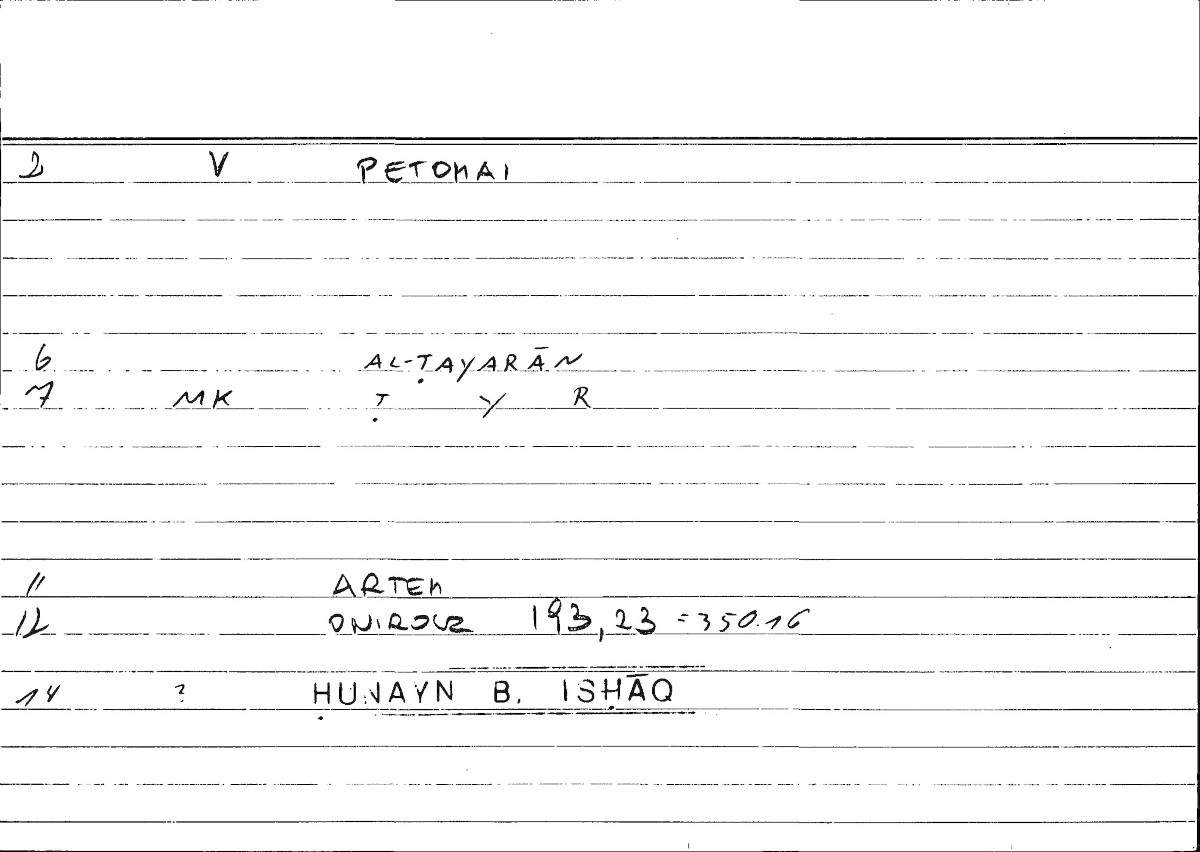 2 V PETOMAI
6 AL-ṬAYARĀN
7 MK Ṭ Y R
11 ARTEM
12 ONIROCR 193,23 = 350.16
14 ? ḤUNAYN B. ISḤĀQ